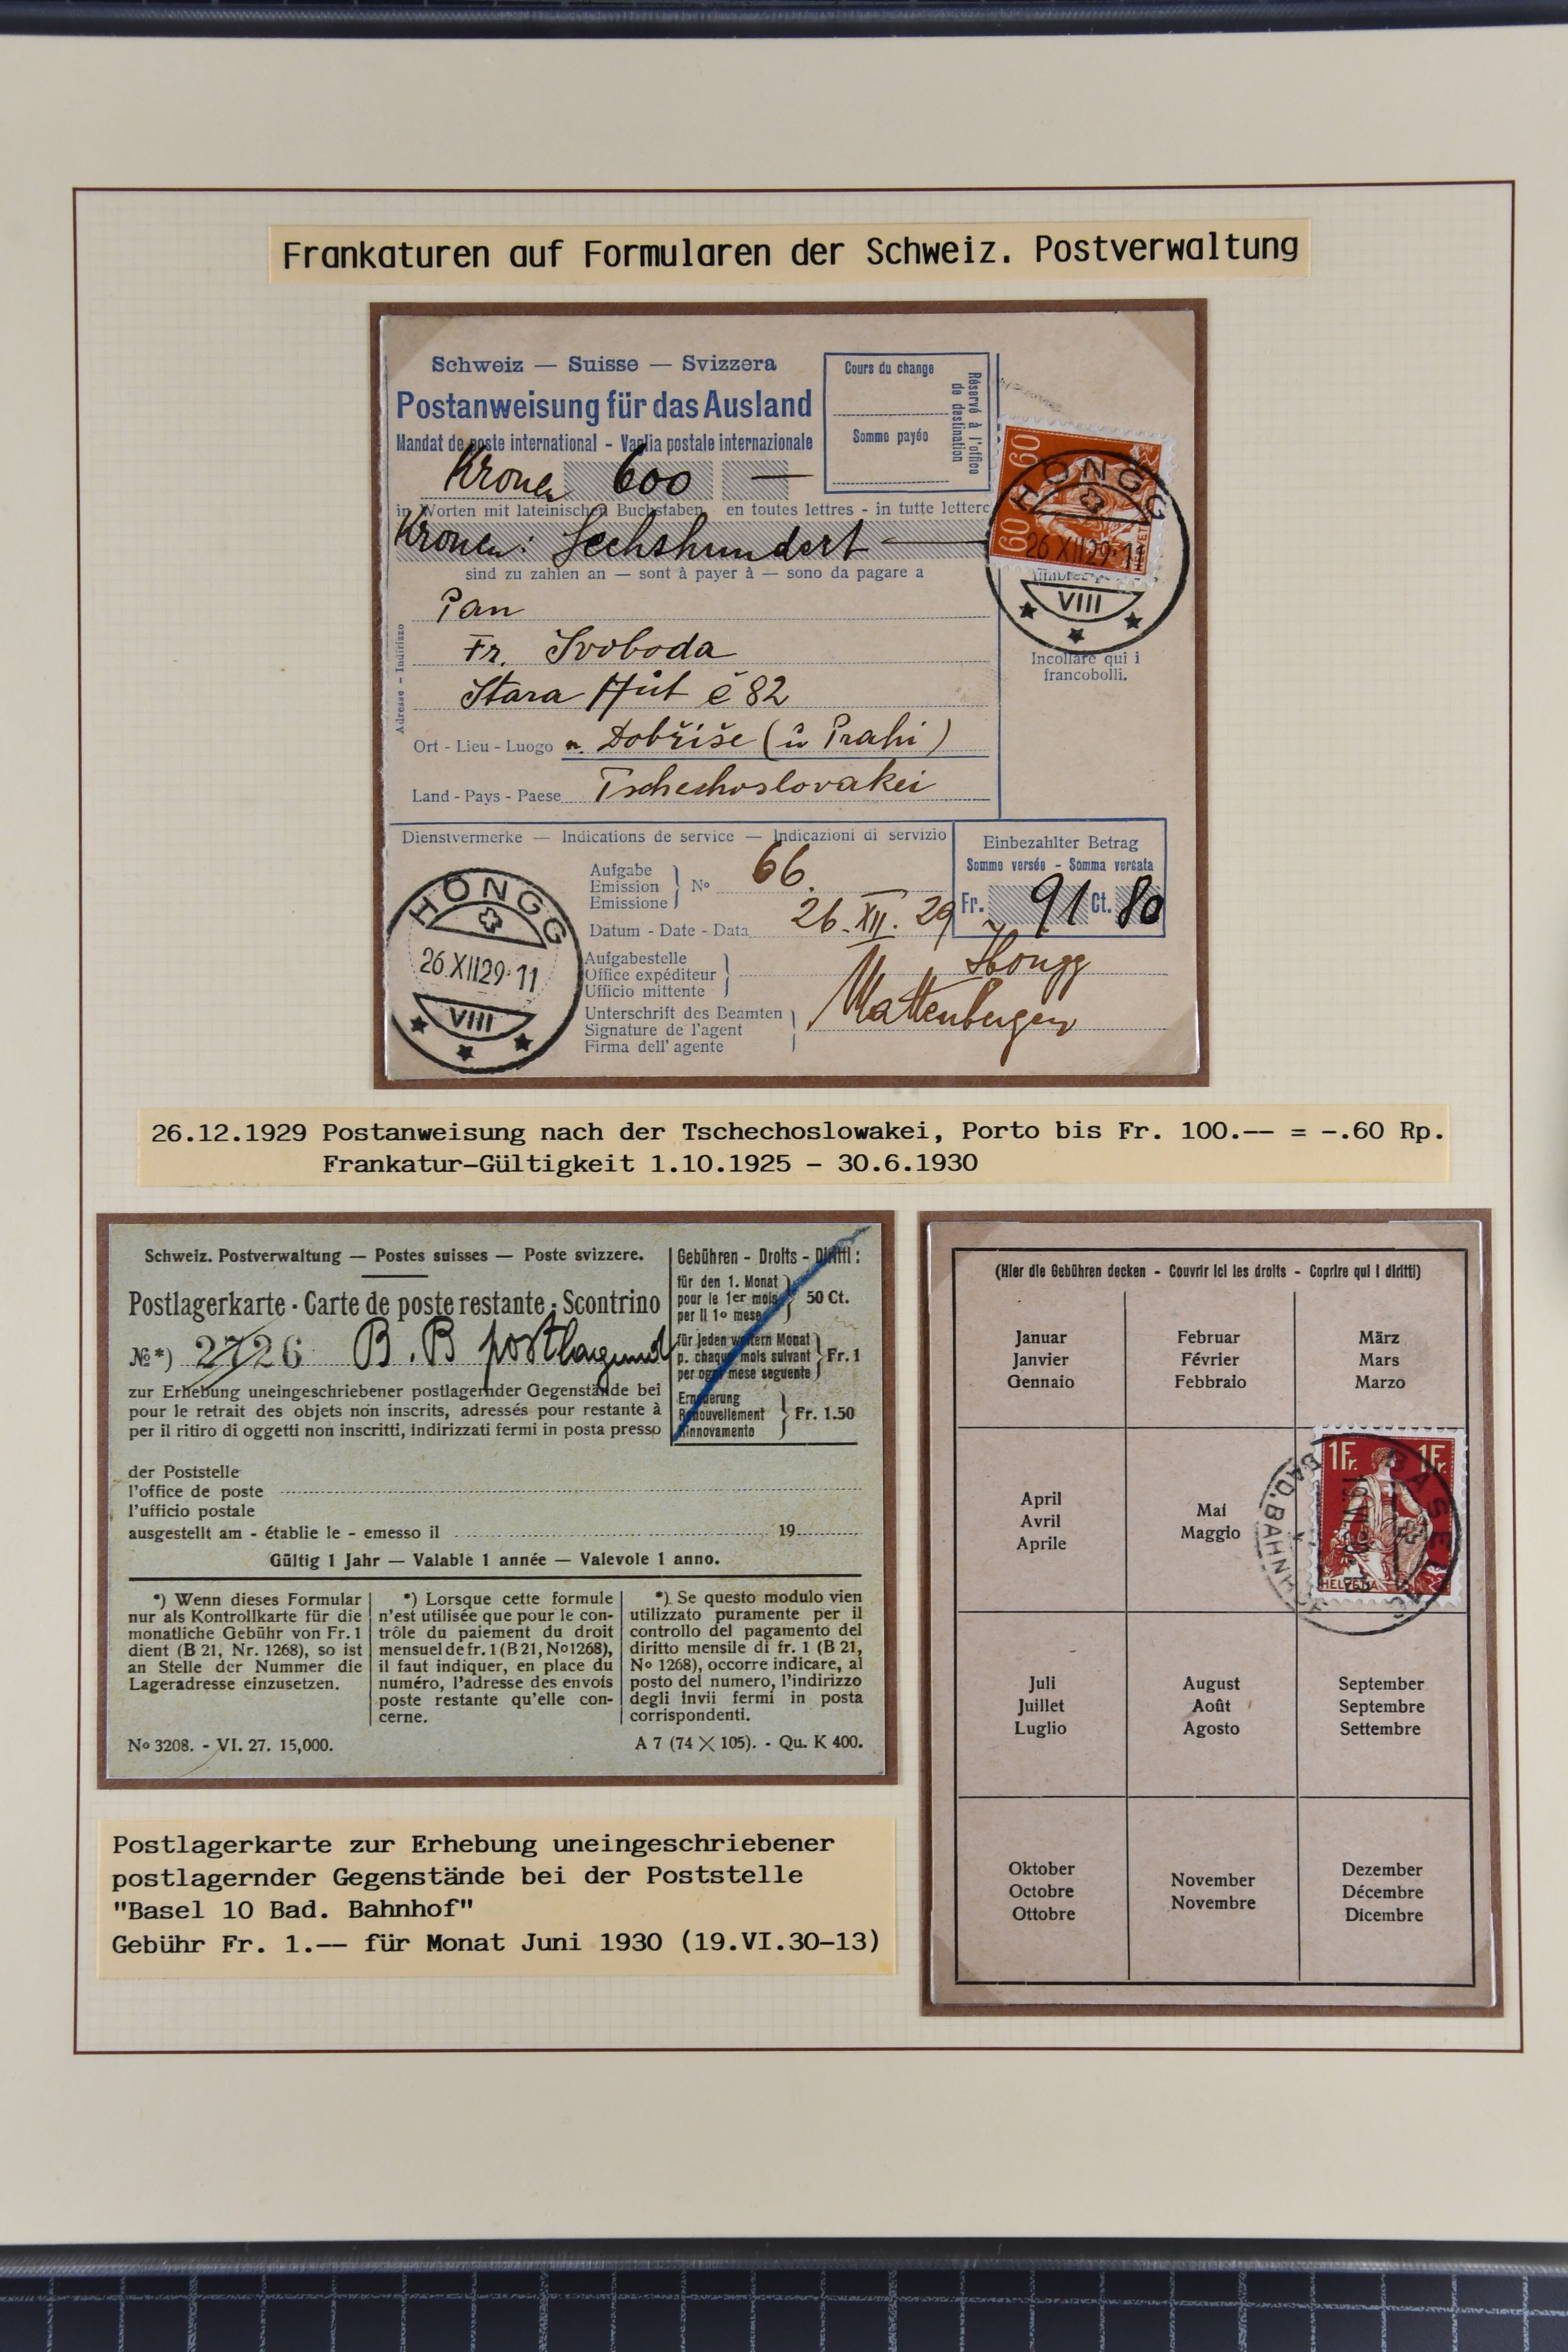 Frankaturen auf Formularen der Schweiz. Postverwaltung
Schweiz — Suisse — Svizzera
Postanweisung für das Ausland
Mandat de poste international - Vaglia postale internazionale
Cours du change
Somme payée
Réservé à l'office
de destination
Kronen 600 —
in Worten mit lateinischen Buchstaben en toutes lettres - in tutte lettere
Kronen: Sechshundert —
sind zu zahlen an — sont à payer à — sono da pagare a
60 60
HÖNGG
26.XII29·11
VIII
Incollare qui i
francobolli.
Adresse - Indirizzo
Pan
Fr. Svoboda
Stara Hůt č 82
Ort - Lieu - Luogo n. Dobříše (u Prahi)
Land - Pays - Paese Tschechoslovakei
Dienstvermerke — Indications de service — Indicazioni di servizio
Einbezahlter Betrag
Somme versée - Somma versata
Fr. 91 Ct. 80
HÖNGG
26.XII29·11
VIII
Aufgabe
Emission
Emissione
No 66.
Datum - Date - Data 26. XII. 29
Aufgabestelle
Office expéditeur
Ufficio mittente
Höngg
Unterschrift des Beamten
Signature de l'agent
Firma dell' agente
26.12.1929 Postanweisung nach der Tschechoslowakei, Porto bis Fr. 100.-- = -.60 Rp.
Frankatur-Gültigkeit 1.10.1925 - 30.6.1930
Schweiz. Postverwaltung — Postes suisses — Poste svizzere.
Postlagerkarte · Carte de poste restante · Scontrino
No *) 2726 B. B postlagernd
zur Erhebung uneingeschriebener postlagernder Gegenstände bei
pour le retrait des objets non inscrits, adressés pour restante à
per il ritiro di oggetti non inscritti, indirizzati fermi in posta presso
Gebühren - Droits - Diritti :
für den 1. Monat
pour le 1er mois
per il 1o mese
50 Ct.
für jeden weitern Monat
p. chaque mois suivant
per ogni mese seguente
Fr. 1
Erneuerung
Renouvellement
Rinnovamento
Fr. 1.50
der Poststelle
l'office de poste
l'ufficio postale
ausgestellt am - établie le - emesso il 19
Gültig 1 Jahr — Valable 1 année — Valevole 1 anno.
*) Wenn dieses Formular
nur als Kontrollkarte für die
monatliche Gebühr von Fr. 1
dient (B 21, Nr. 1268), so ist
an Stelle der Nummer die
Lageradresse einzusetzen.
*) Lorsque cette formule
n'est utilisée que pour le con-
trôle du paiement du droit
mensuel de fr. 1 (B 21, No 1268),
il faut indiquer, en place du
numéro, l'adresse des envois
poste restante qu'elle con-
cerne.
*) Se questo modulo vien
utilizzato puramente per il
controllo del pagamento del
diritto mensile di fr. 1 (B 21,
No 1268), occorre indicare, al
posto del numero, l'indirizzo
degli invii fermi in posta
corrispondenti.
No 3208. - VI. 27. 15,000.
A 7 (74 × 105). - Qu. K 400.
Postlagerkarte zur Erhebung uneingeschriebener
postlagernder Gegenstände bei der Poststelle
"Basel 10 Bad. Bahnhof"
Gebühr Fr. 1.-- für Monat Juni 1930 (19.VI.30-13)
(Hier die Gebühren decken - Couvrir ici les droits - Coprire qui i diritti)
Januar
Janvier
Gennaio
Februar
Février
Febbraio
März
Mars
Marzo
April
Avril
Aprile
Mai
Maggio
1Fr. 1Fr.
HELVETIA
BASEL
BAD. BAHNHOF
Juli
Juillet
Luglio
August
Août
Agosto
September
Septembre
Settembre
Oktober
Octobre
Ottobre
November
Novembre
Dezember
Décembre
Dicembre